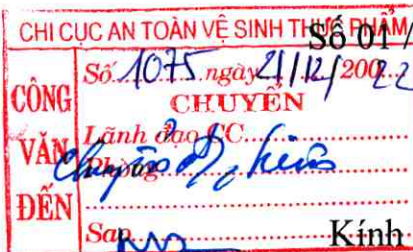 CHI CỤC AN TOÀN VỆ SINH THỰC PHẨM
Số 01 /
CÔNG VĂN ĐẾN
Số 1075 ngày 21/12/2002 2
CHUYỂN
Lãnh đạo CC
Phòng
Sao
Kính